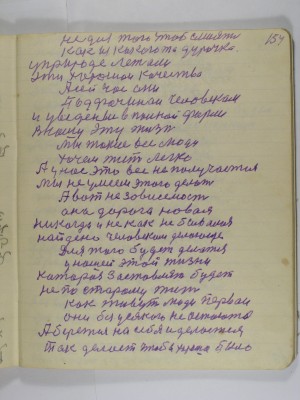 не для того чтоб смаять
154
как и какого то дурочка.
у природе легли
эти хорошии качества
Ясей час они
Поддрочинаи человекам
и уведенов в полной форми
в нашу эту жизн
мы такие все люди
хочем жит легко
А у нас это все не получается
мы не умеем этого делат
А вот не зовисемост
она дорога новая
никогда и не как не бывалая
найдено человеком делаеця
для того будет делатся
у нашей этой жизни
которая заставлят будет
не по старому жит
как живут люди первои
они без всякого не остаются
А бережия на себя и делоется
так делает чтобы хорошо было